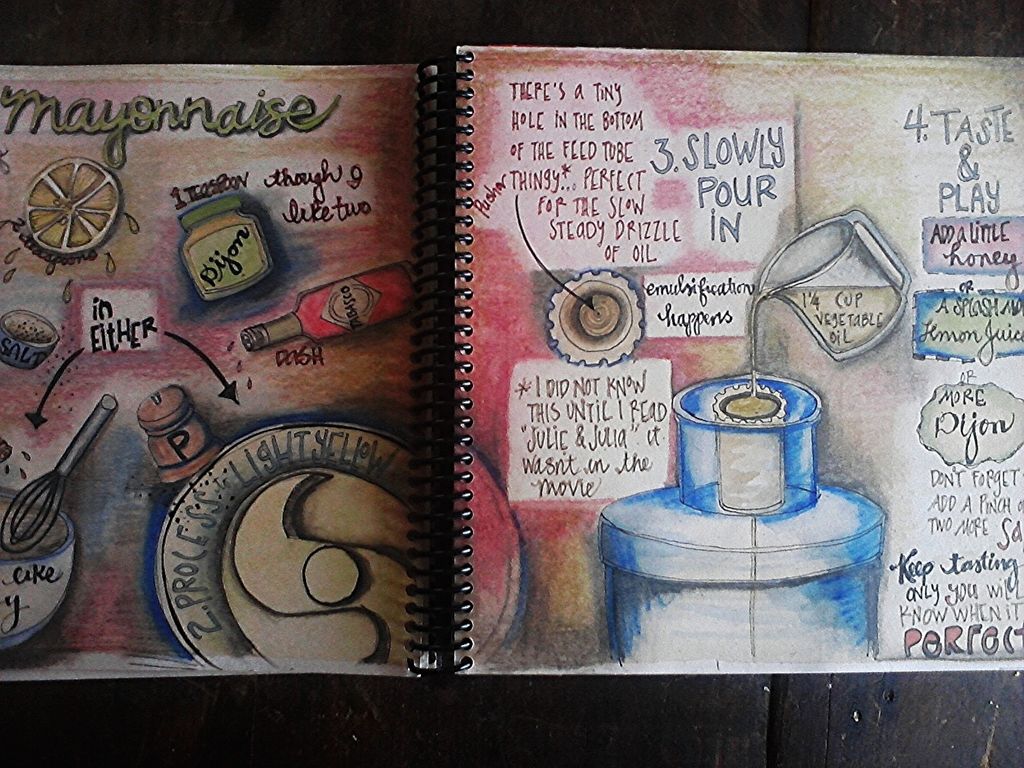 mayonnaise
1 TEASPOON though I
like two
Dijon
TABASCO
DASH
in
EITHER
SALT
P
2. PROCESS to LIGHT YELLOW
like
y
THERE'S A TINY
HOLE IN THE BOTTOM
OF THE FEED TUBE
Pusher THINGY*... PERFECT
FOR THE SLOW
STEADY DRIZZLE
OF OIL
3. SLOWLY
POUR
IN
emulsification
happens
1/4 CUP
VEGETABLE
OIL
* I DID NOT KNOW
THIS UNTIL I READ
"JULIE & JULIA" it
wasn't in the
movie
4. TASTE
&
PLAY
ADD A LITTLE
honey
OR
A SPLASH
lemon Juice
OR
MORE
Dijon
DON'T FORGET
ADD A PINCH
TWO MORE
Keep tasting
ONLY YOU WILL
KNOW WHEN IT
PERFECT